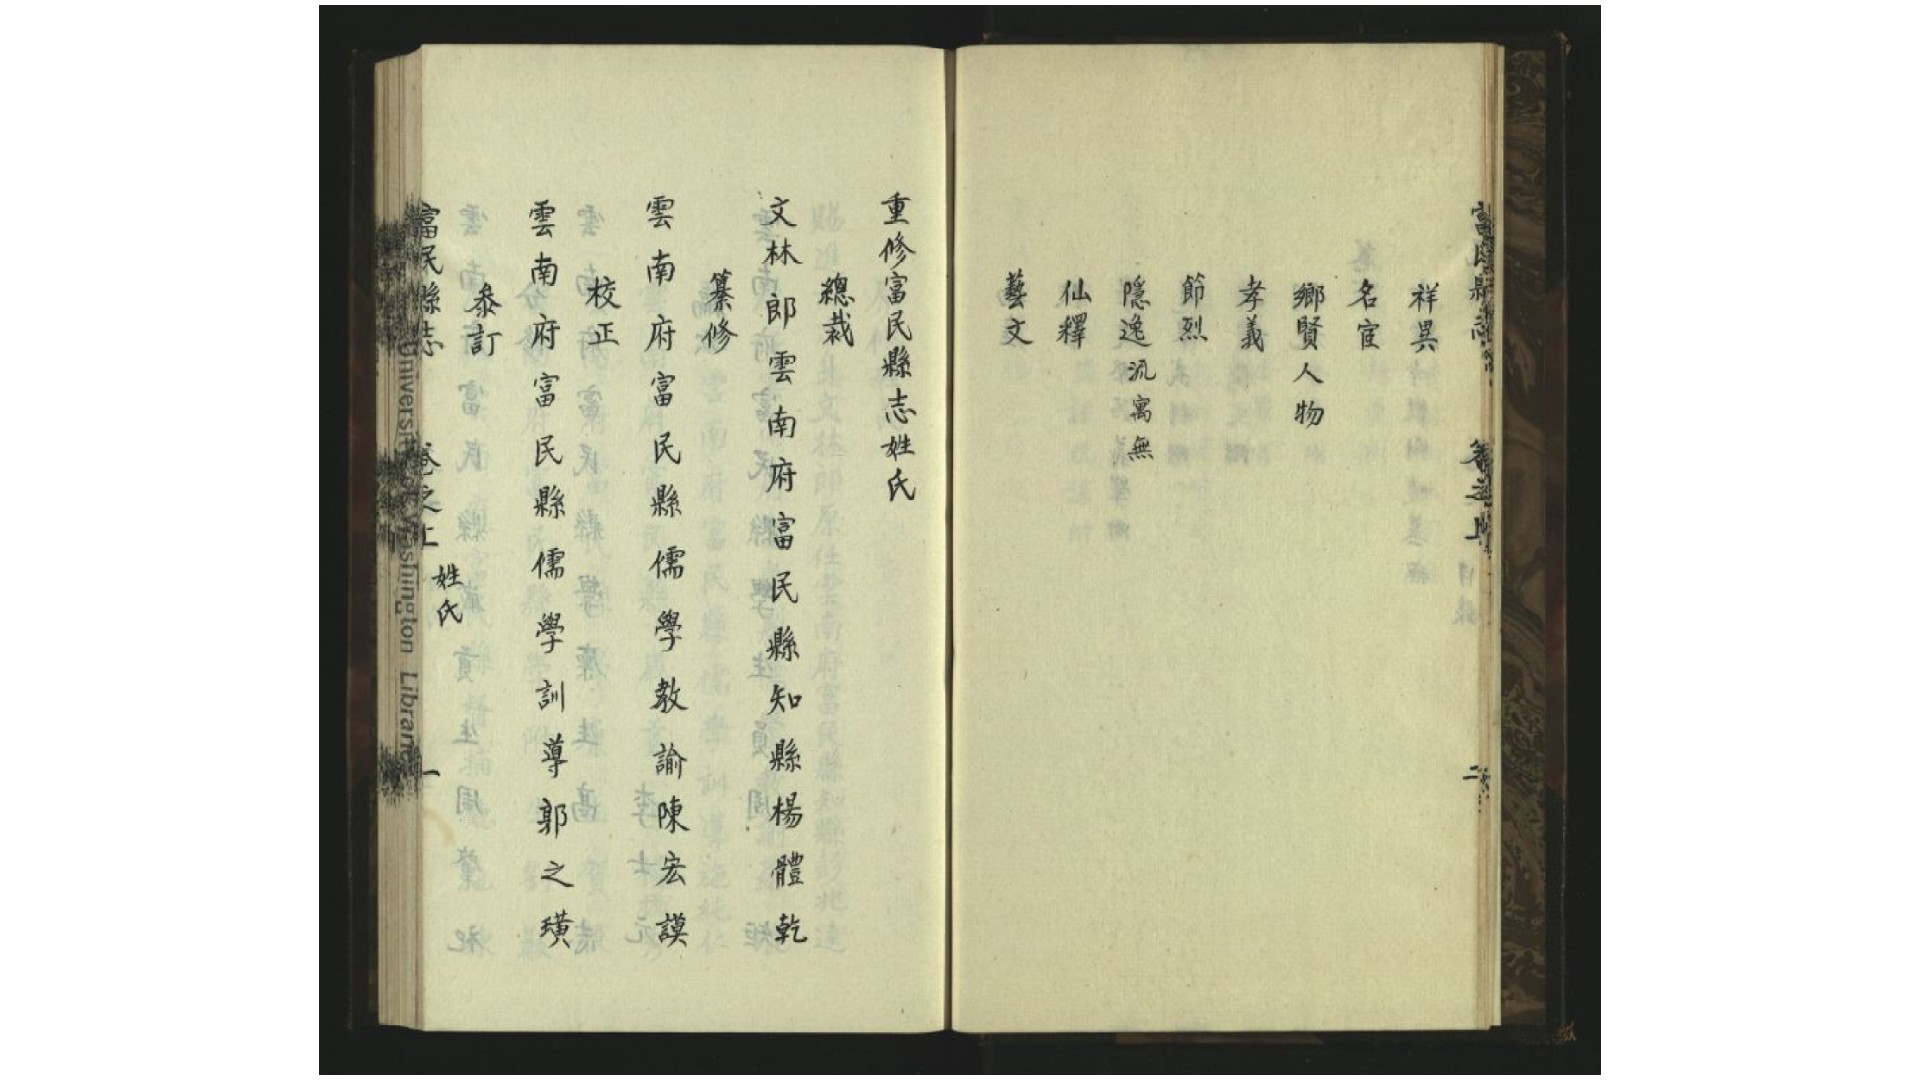 富民縣志 卷之上 目錄 二
祥異
名宦
鄉賢人物
孝義
節烈
隱逸 流寓無
仙釋
藝文
重修富民縣志姓氏
總裁
文林郎雲南府富民縣知縣楊體乾
纂修
雲南府富民縣儒學教諭陳宏謨
校正
雲南府富民縣儒學訓導郭之璜
叅訂
富民縣志 卷之上 姓氏 一
University of Washington Library